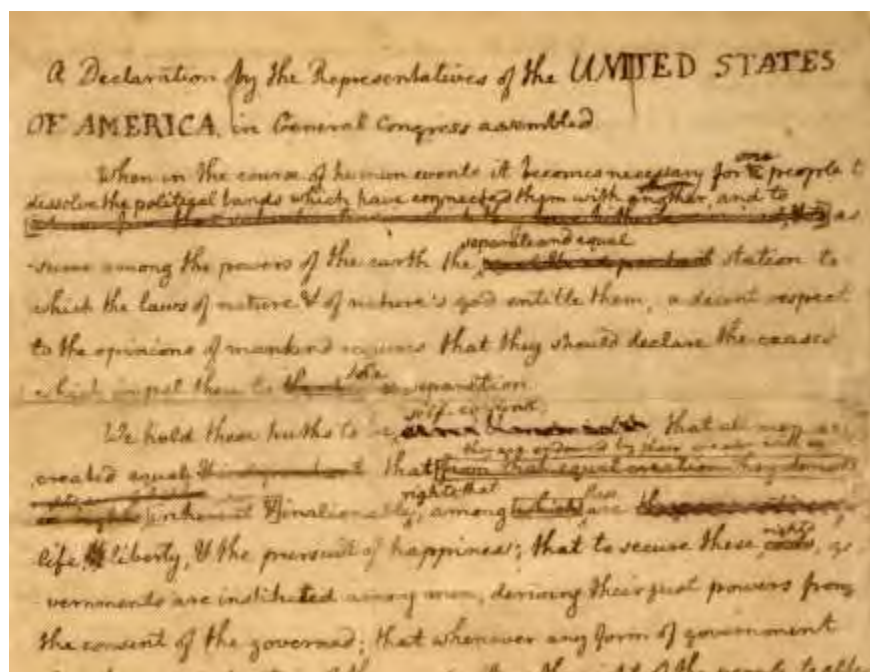 A Declaration by the Representatives of the UNITED STATES
OF AMERICA, in General Congress assembled.
When in the course of human events it becomes necessary for one people t
dissolve the political bands which have connected them with another, and to
as
separate and equal
-sume among the powers of the earth the station to
which the laws of nature & of nature's god entitle them, a decent respect
to the opinions of mankind requires that they should declare the causes
which impel them to the separation.
self-evident
We hold these truths to be that all men are
they are endowed by their creator with
created equal that from that equal creation they
rights that
inherent & inalienable, among which are
life, liberty, & the pursuit of happiness; that to secure these rights, go
vernments are instituted among men, deriving their just powers from
the consent of the governed; that whenever any form of government